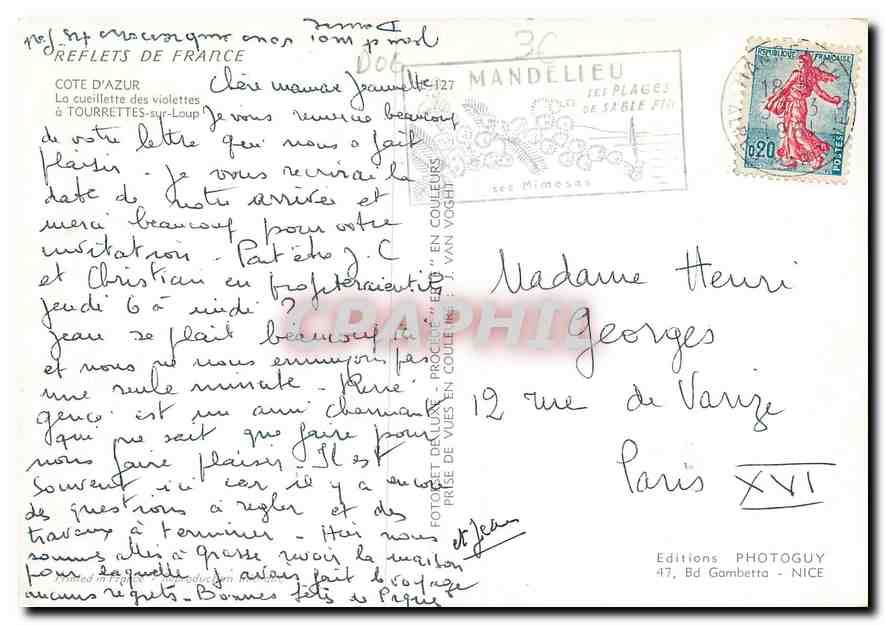 REFLETS DE FRANCE
COTE D'AZUR
La cueillette des violettes
à TOURRETTES-sur-Loup
127
Chère maman Jeannette
Je vous remercie beaucoup
de votre lettre qui nous a fait
plaisir - Je vous récrirai la
date de notre arrivée et
merci beaucoup pour votre
invitation - Peut être J.C
et Christian en profiteraient ils
jeudi 6 à midi ?
Jean se plait beaucoup ici
et nous ne nous ennuyons pas
une seule minute - René
est un ami charmant
qui ne sait que faire pour
nous faire plaisir - Il est
souvent ici car il y a encore
des questions à régler et des
travaux à terminer - Hier nous
sommes allés à Grasse revoir la maison
pour laquelle j'avais fait le voyage
aucuns regrets - Bonnes fêtes de Pâques
et Jean
Jean et moi vous embrassons
Denise
Printed in France - Reproduction
FOTOFSET DE LUXE - PROCÉDÉ "EPO" EN COULEURS
PRISE DE VUES EN COULEURS : J. VAN VOGHT
3€
D06
MANDELIEU
SES PLAGES
DE SABLE FIN
ses Mimosas
18
RÉPUBLIQUE FRANÇAISE
0,20
POSTES
CPAPHIL
Madame Henri
Georges
12 rue de Varize
Paris XVI
Editions PHOTOGUY
47, Bd Gambetta - NICE